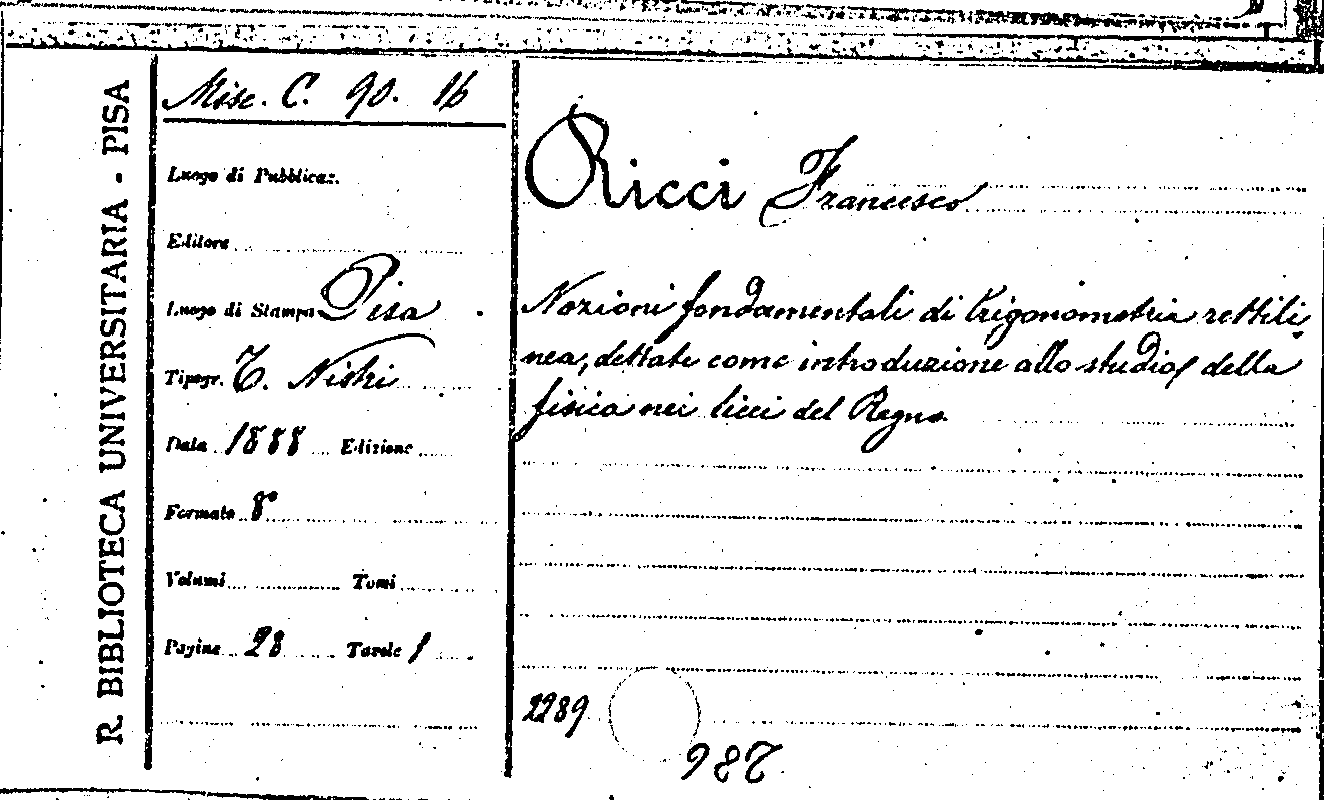 R. BIBLIOTECA UNIVERSITARIA - PISA
Misc. C. 90. 16
Luogo di Pubblicaz.
Editore
Luogo di Stampa Pisa
Tipogr. T. Nistri
Data 1888 Edizione
Formato 8°
Volumi Tomi
Pagine 28 Tavole 1
Ricci Francesco
Nozioni fondamentali di trigonometria rettili
nea, dettate come introduzione allo studio della
fisica nei licei del Regno.
2289